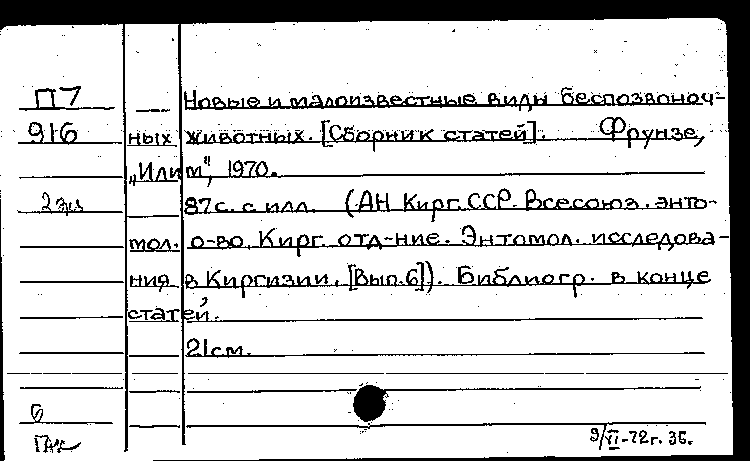 П7 Новые и малоизвестные виды беспозвоноч-
916 ных животных. [Сборник статей]. Фрунзе,
„Илим", 1970.
2 экз 87с. с илл. (АН Кирг. ССР. Всесоюз. энто-
мол. о-во, Кирг. отд-ние. Энтомол. исследова-
ния в Киргизии. [Вып.6]). Библиогр. в конце
статей.
21см.
б
9/VI-72г. 36.